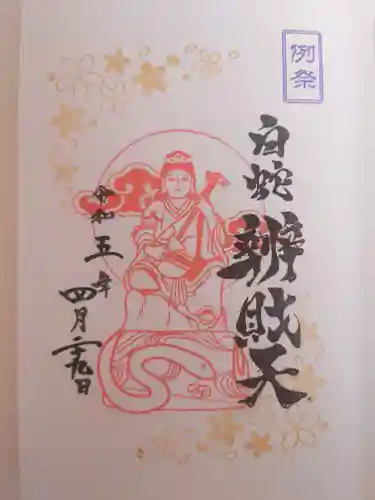 例祭
白蛇
辨財天
令和
五年
四月二九日